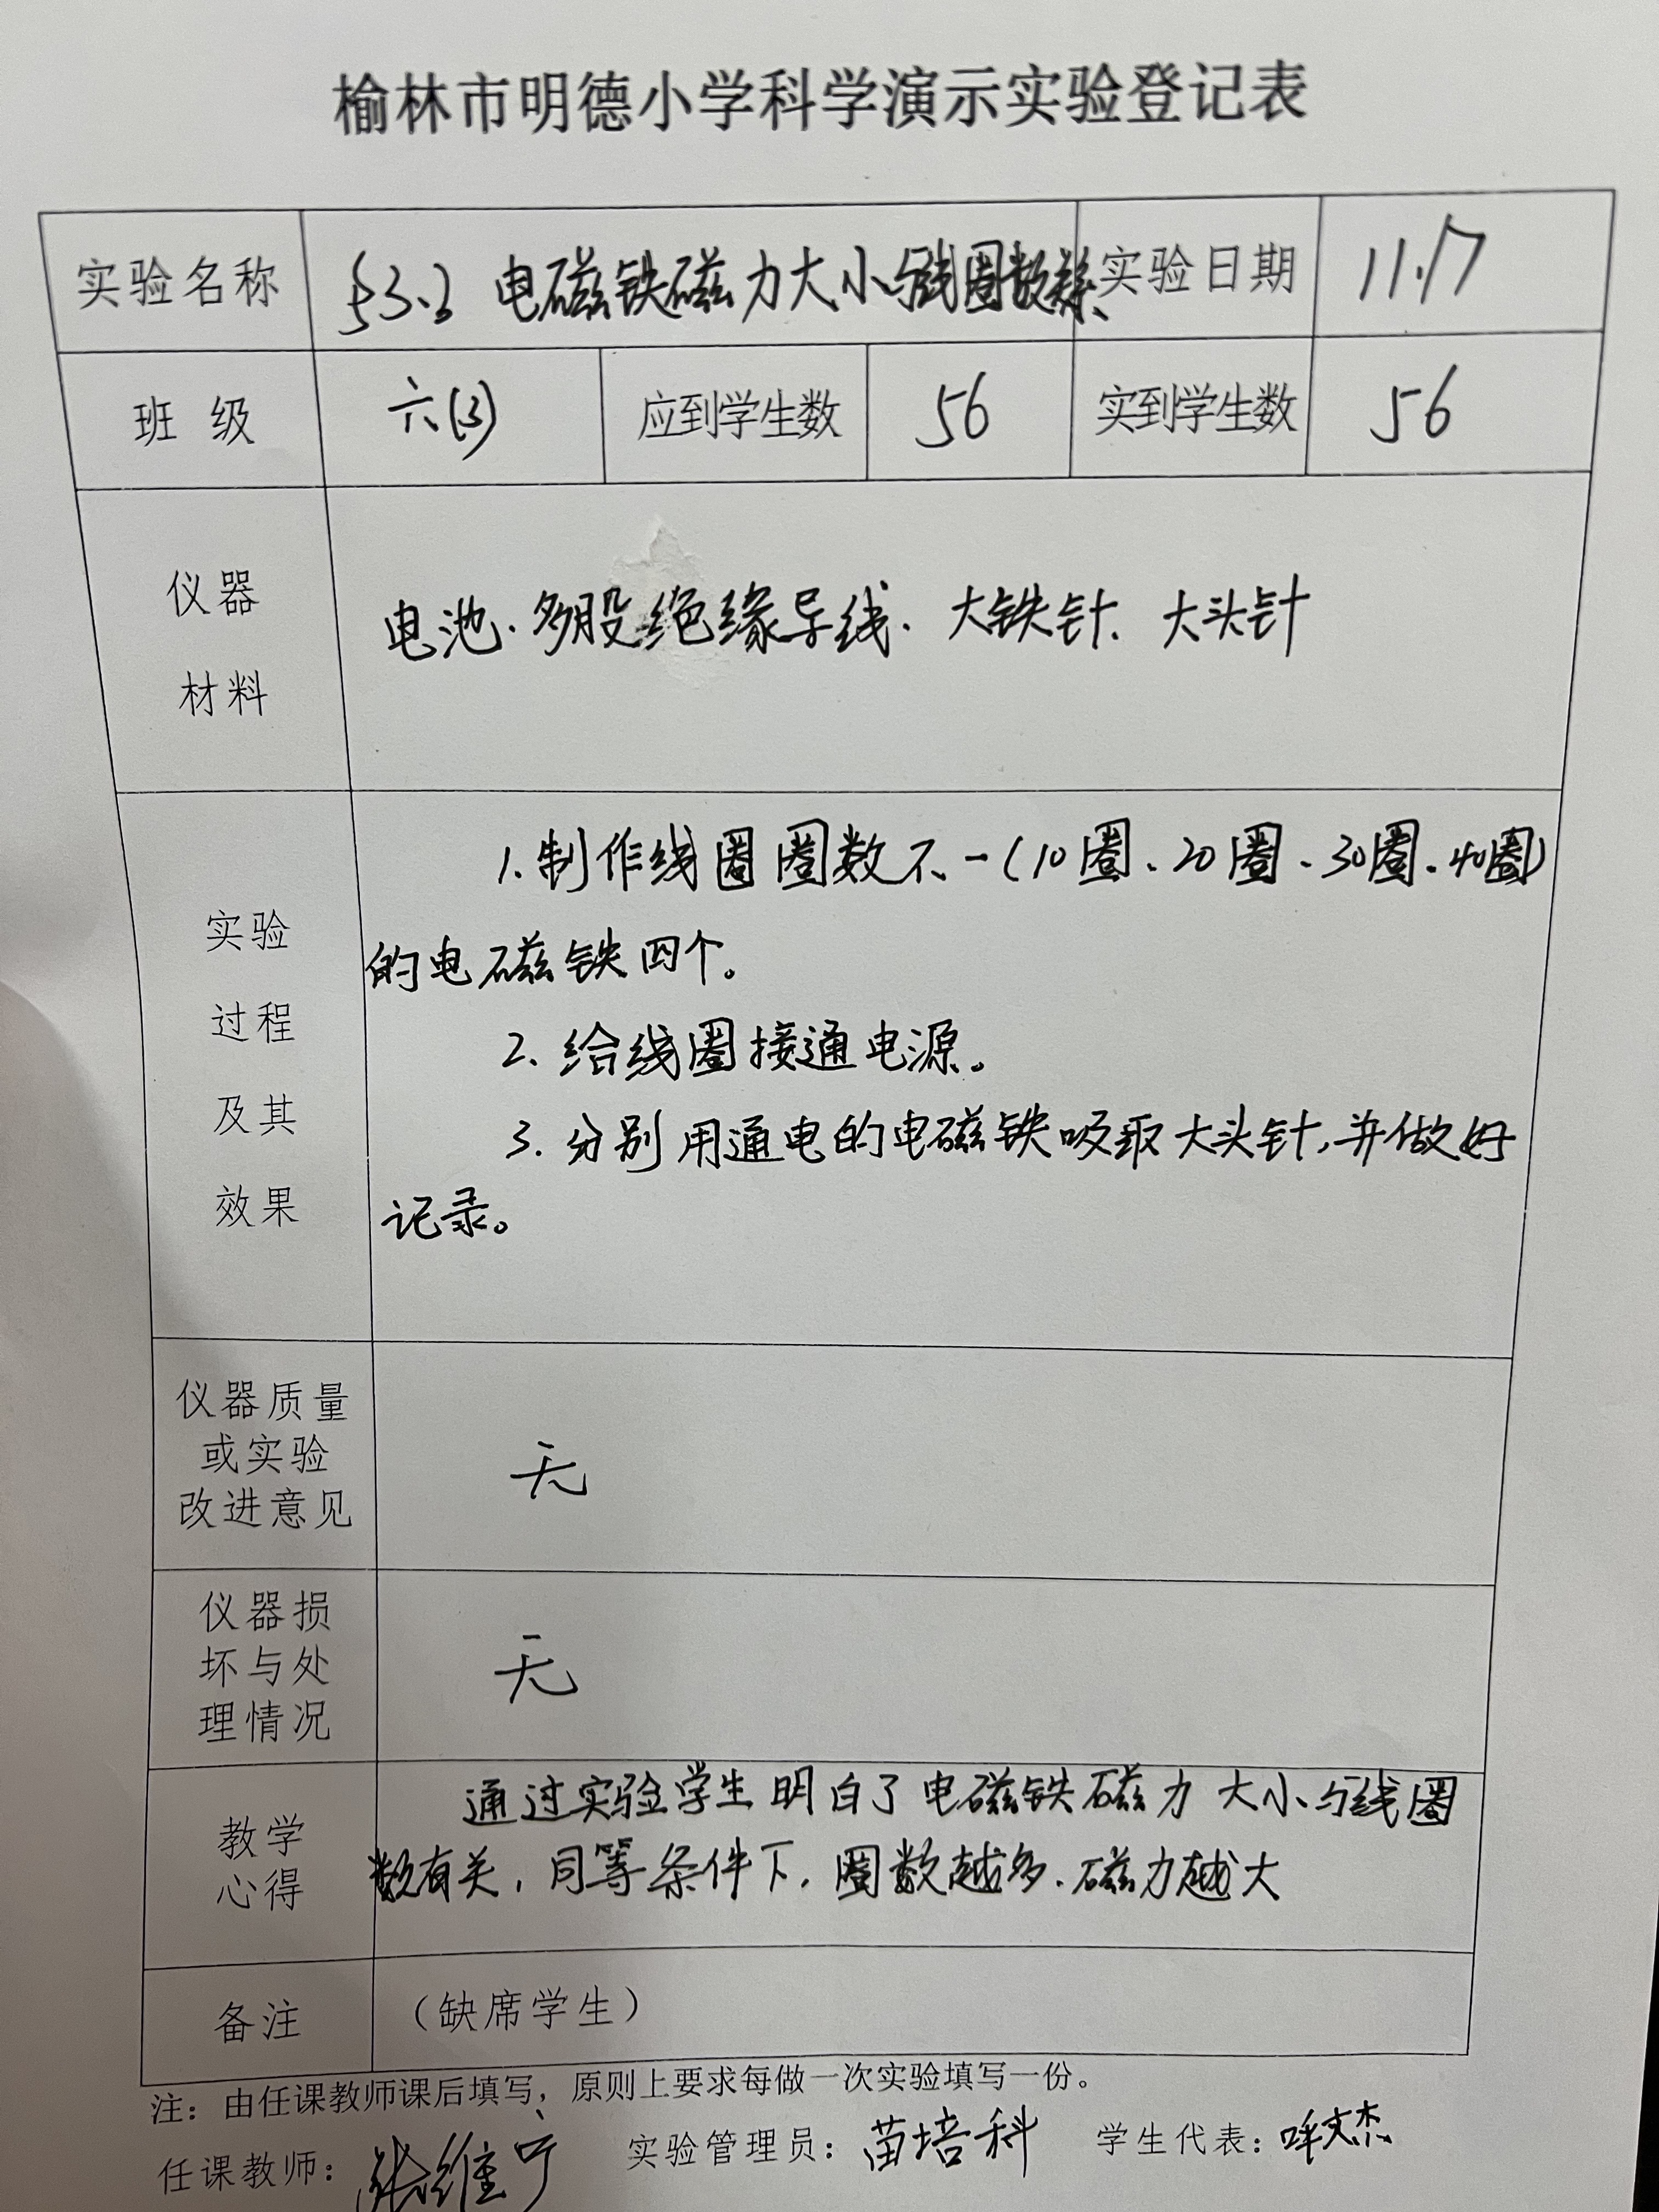 榆林市明德小学科学演示实验登记表
实验名称 §3.3 电磁铁磁力大小与线圈数 实验日期 11.17
班 级 六(3) 应到学生数 56 实到学生数 56
仪器
材料
电池、多股绝缘导线、大铁针、大头针
实验
过程
及其
效果
1.制作线圈圈数不一(10圈、20圈、30圈、40圈)
的电磁铁四个。
2. 给线圈接通电源。
3. 分别用通电的电磁铁吸取大头针,并做好
记录。
仪器质量
或实验
改进意见
无
仪器损
坏与处
理情况
无
教学
心得
通过实验学生明白了电磁铁磁力大小与线圈
数有关,同等条件下,圈数越多、磁力越大
备注 (缺席学生)
注:由任课教师课后填写,原则上要求每做一次实验填写一份。
任课教师: 张维 实验管理员:苗培科 学生代表:呼文杰